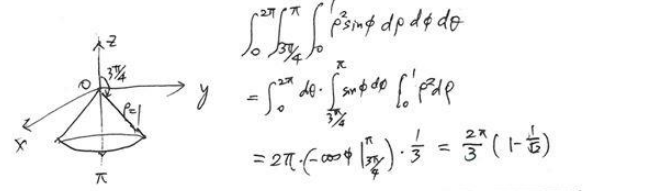 z
3π/4
O
y
ρ=1
x
π
∫₀^{2π} ∫_{3π/4}^{π} ∫₀^{1} ρ² sinϕ dρ dϕ dθ
= ∫₀^{2π} dθ · ∫_{3π/4}^{π} sinϕ dϕ ∫₀^{1} ρ² dρ
= 2π · (-cosϕ |_{3π/4}^{π}) · 1/3 = 2π/3 (1 - 1/√2)